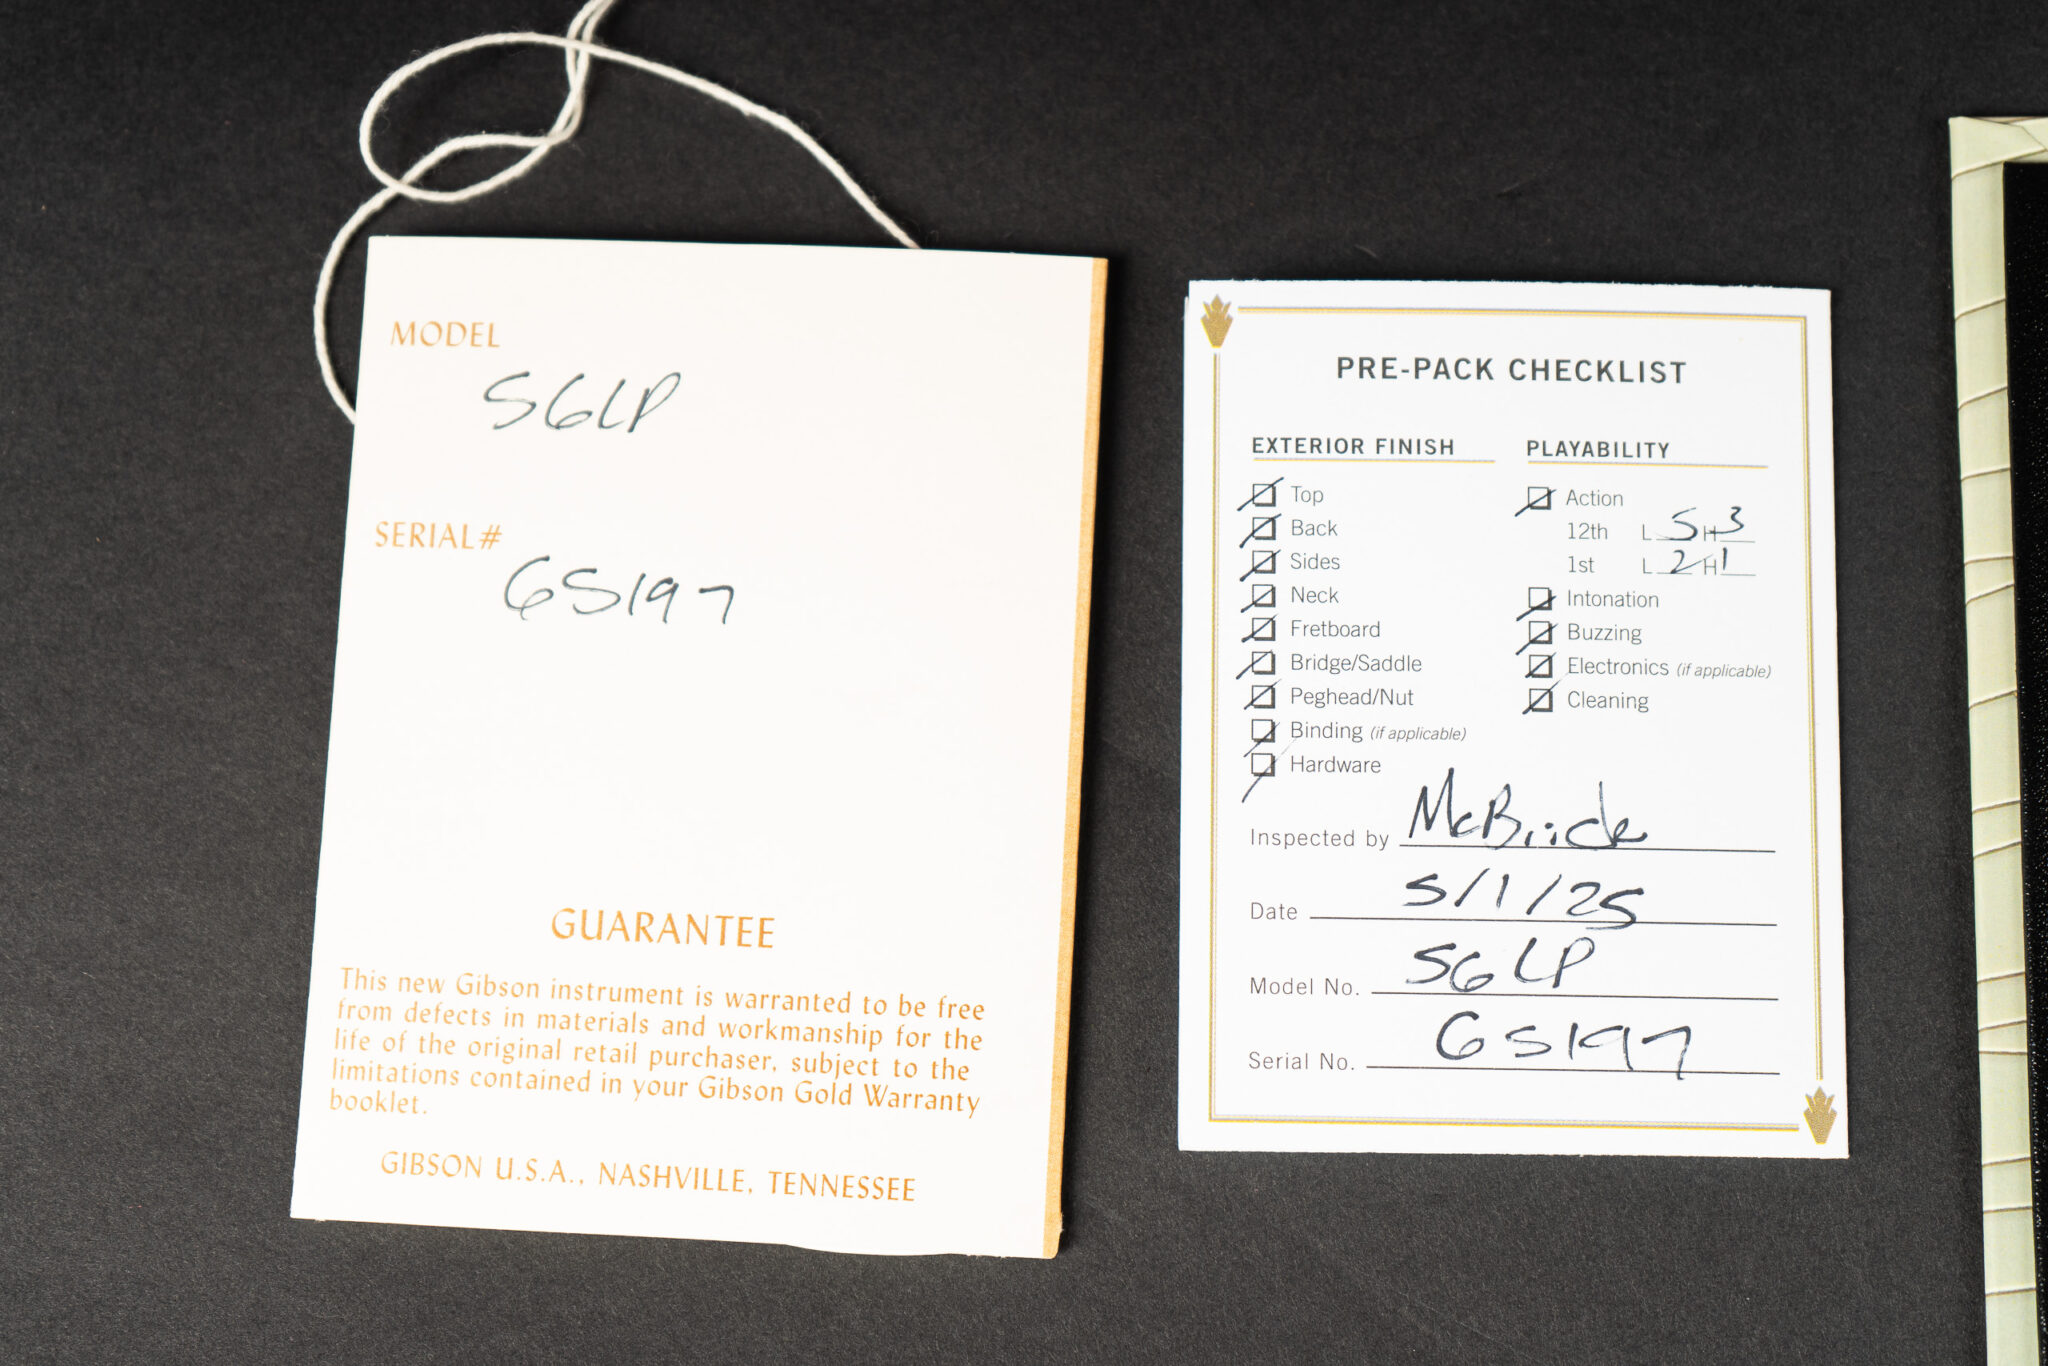 MODEL
SGLP
SERIAL#
GS197
GUARANTEE
This new Gibson instrument is warranted to be free
from defects in materials and workmanship for the
life of the original retail purchaser, subject to the
limitations contained in your Gibson Gold Warranty
booklet.
GIBSON U.S.A., NASHVILLE, TENNESSEE
PRE-PACK CHECKLIST
EXTERIOR FINISH
Top
Back
Sides
Neck
Fretboard
Bridge/Saddle
Peghead/Nut
Binding (if applicable)
Hardware
PLAYABILITY
Action
12th L 5 H 3
1st L 2 H 1
Intonation
Buzzing
Electronics (if applicable)
Cleaning
Inspected by McBride
Date 5/1/25
Model No. SGLP
Serial No. GS197